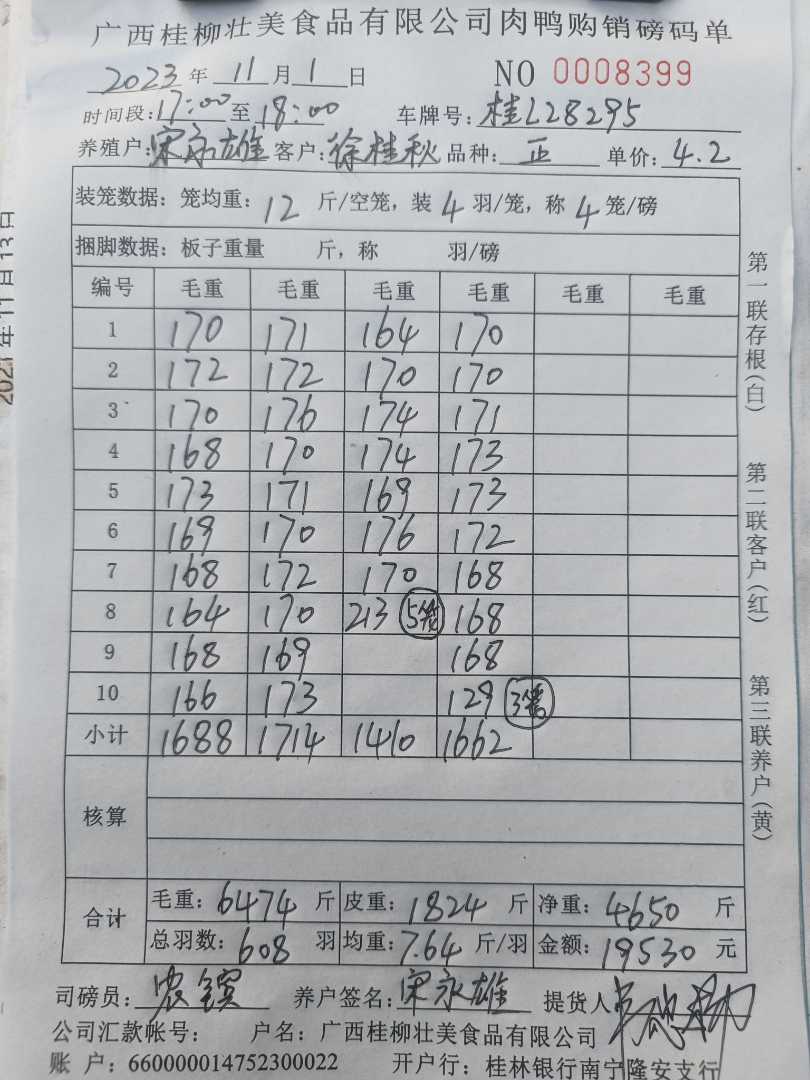 广西桂柳壮美食品有限公司肉鸭购销磅码单
2023年11月1日 NO 0008399
时间段:17:00至18:00 车牌号:桂L28295
养殖户:宋永雄 客户:徐桂秋 品种:正 单价:4.2
装笼数据:笼均重:12斤/空笼,装4羽/笼,称4笼/磅
捆脚数据:板子重量 斤,称 羽/磅
编号 毛重 毛重 毛重 毛重 毛重 毛重
1 170 171 164 170
2 172 172 170 170
3 170 176 174 171
4 168 170 174 173
5 173 171 169 173
6 169 170 176 172
7 168 172 170 168
8 164 170 213 5笼 168
9 168 169 168
10 166 173 129 3笼
小计 1688 1714 1410 1662
核算
合计
毛重:6474斤 皮重:1824斤 净重:4650斤
总羽数:608羽 均重:7.64斤/羽 金额:19530元
司磅员:农 养户签名:宋永雄 提货人
公司汇款帐号: 户名:广西桂柳壮美食品有限公司
账户:660000014752300022 开户行:桂林银行南宁隆安支行
第一联存根(白)
第二联客户(红)
第三联养户(黄)
年11月13日